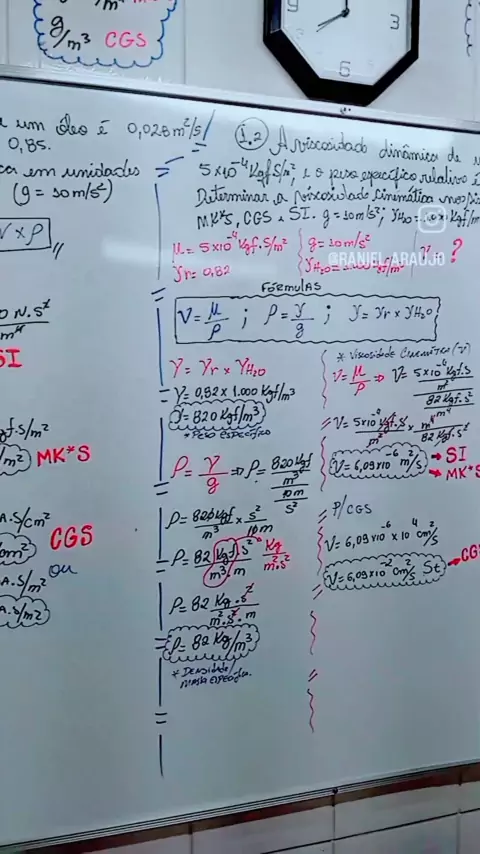 g/m³ CGS
9
3
6
um óleo é 0,028 m²/s
0,85.
em unidades
(g = 10 m/s²)
V × ρ
SI
MK*S
CGS
ou
1.2 A viscosidade dinâmica de
5×10⁻⁴ Kgf.S/m², e o peso específico relativo é
Determinar a viscosidade cinemática nos
MK*S, CGS e SI. g = 10 m/s²;
@RANIEL_ARAUJO
μ = 5×10⁻⁴ Kgf.S/m²
g = 10 m/s²
γr = 0,82
?
FÓRMULAS
V = μ/ρ ; ρ = γ/g ; γ = γr × γH₂O
γ = γr × γH₂O
γ = 0,82 × 1.000 Kgf/m³
γ = 820 Kgf/m³
* PESO ESPECÍFICO
ρ = γ/g ⇒ ρ = 820 Kgf/m³ / 10 m/s²
ρ = 820 Kgf/m³ × s²/10 m
ρ = 82 Kgf.s²/m³.m
Kg/m².s²
ρ = 82 Kg.s²/m².s².m
ρ = 82 Kg/m³
* DENSIDADE/
MASSA ESPECÍFICA.
* VISCOSIDADE CINEMÁTICA (V)
V = μ/ρ ⇒ V = 5×10⁻⁴ Kgf.S/m² / 82 Kgf.S²/m⁴
V = 5×10⁻⁴ Kgf.S/m² × m⁴/82 Kgf.S²
V = 6,09×10⁻⁶ m²/s → SI
→ MK*S
P/CGS
V = 6,09×10⁻⁶ × 10⁴ cm²/s
V = 6,09×10⁻² cm²/s St → CGS